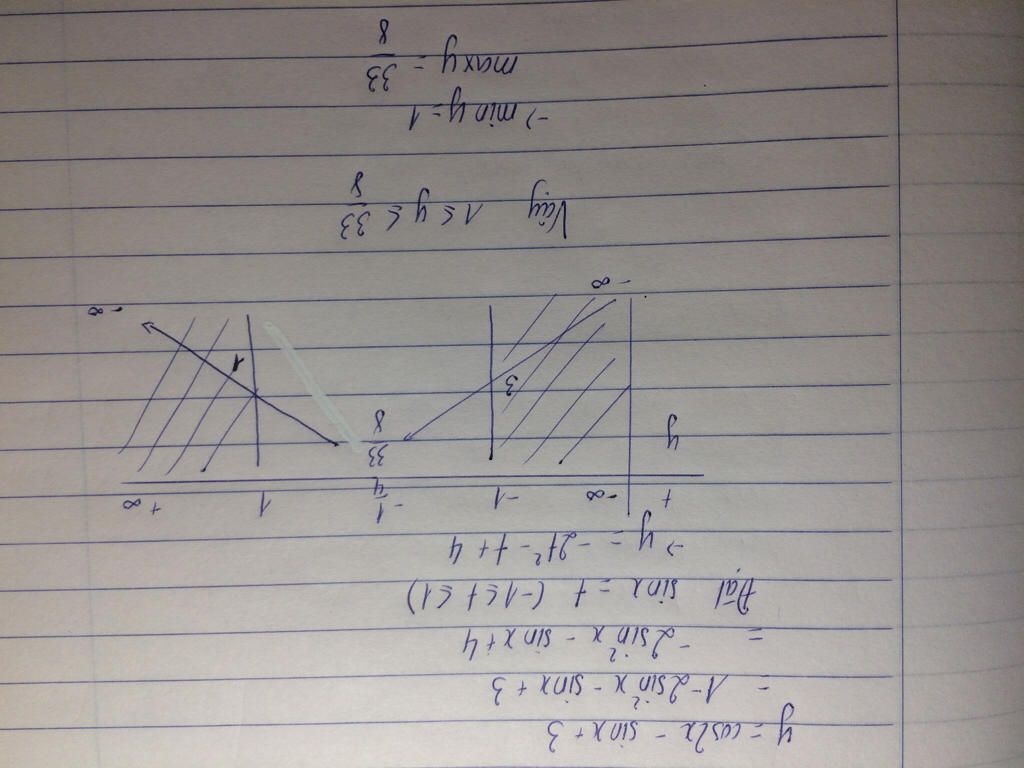 y = cos2x - sinx + 3
= 1-2sin²x - sinx + 3
= -2sin²x - sinx + 4
Đặt sinx = t (-1 ≤ t ≤ 1)
→ y = -2t² - t + 4
t -∞ -1 -1/4 1 +∞
y -∞ 3 33/8 1 -∞
Vậy 1 ≤ y ≤ 33/8
→ min y = 1
max y = 33/8